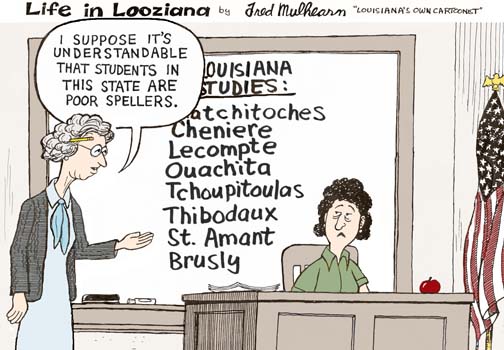 Life in Looziana by Fred Mulhearn "LOUISIANA'S OWN CARTOONIST"
I SUPPOSE IT'S
UNDERSTANDABLE
THAT STUDENTS IN
THIS STATE ARE
POOR SPELLERS.
LOUISIANA
STUDIES:
Natchitoches
Cheniere
Lecompte
Ouachita
Tchoupitoulas
Thibodaux
St. Amant
Brusly